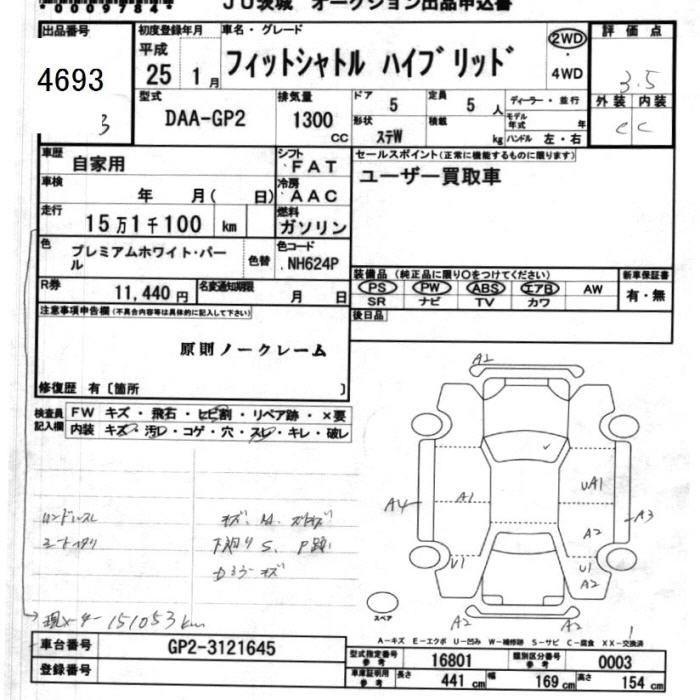 JU茨城 オークション出品申込書
出品番号
4693
3
初度登録年月
平成
25 1 月
車名・グレード
フィットシャトル ハイブリッド
2WD
・
4WD
評価点
3.5
外装 内装
C C
型式
DAA-GP2
排気量
1300 CC
ドア 5
定員 5 人
形状 ステW
積載 kg
ディーラー・並行
モデル年式 年
ハンドル 左・右
車歴 自家用
シフト FAT
車検 年 月( 日)
冷房 AAC
走行 15万1千100 km
燃料 ガソリン
色 プレミアムホワイト・パール
色替
色コード NH624P
セールスポイント(正常に機能するものに限ります)
ユーザー買取車
R券 11,440 円
名変通知期限 月 日
装備品 (純正品に限り○をつけてください)
PS PW ABS エアB AW
SR ナビ TV カワ
新車保証書
有・無
後日品
注意事項申告欄(不具合内容等は具体的に記入して下さい)
原則ノークレーム
修復歴 有〔箇所 〕
検査員記入欄
FW キズ・飛石・ヒビ割・リペア跡・×要
内装 キズ・汚レ・コゲ・穴・スレ・キレ・破レ
ハンドルスレ
シートヘタリ
下廻りS、P跡
現メーター 151053km
A2
A1
UA1
A4
A3
A2
U1
U1
A2
A2
A2
スペア
A-キズ E-エクボ U-凹み W-補修跡 S-サビ C-腐食 XX-交換済
車台番号 GP2-3121645
登録番号
型式指定番号 参考 16801
類別区分番号 参考 0003
車庫証明用 参考 長さ 441 cm 幅 169 cm 高さ 154 cm